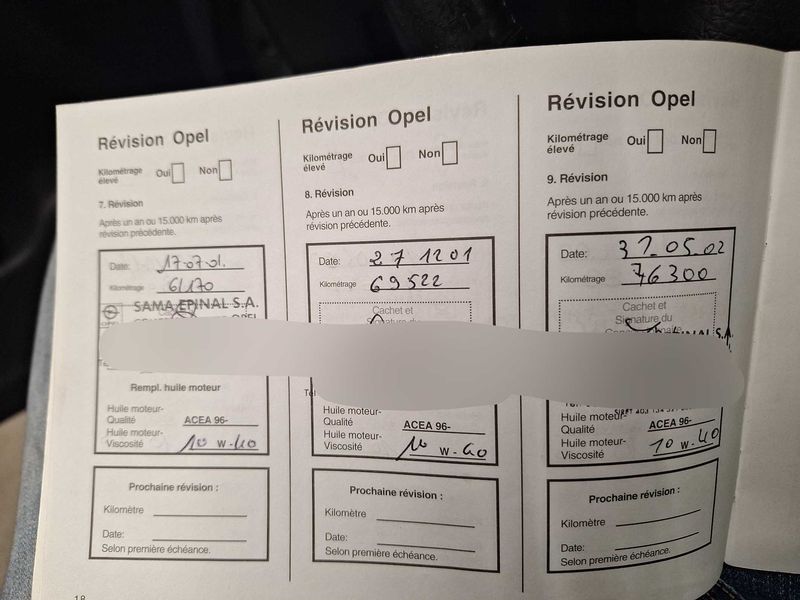 Révision Opel
Kilométrage élevé Oui Non
7. Révision
Après un an ou 15.000 km après
révision précédente.
Date: 17.07.01.
Kilométrage 61170
SAMA EPINAL S.A.
Rempl. huile moteur
Huile moteur-
Qualité ACEA 96-
Huile moteur-
Viscosité 10 W-40
Prochaine révision :
Kilomètre
Date:
Selon première échéance.
18
Révision Opel
Kilométrage élevé Oui Non
8. Révision
Après un an ou 15.000 km après
révision précédente.
Date: 27 12 01
Kilométrage 69522
Cachet et
Signature du
Tél
Huile moteur-
Qualité ACEA 96-
Huile moteur-
Viscosité 10 W-40
Prochaine révision :
Kilomètre
Date:
Selon première échéance.
Révision Opel
Kilométrage élevé Oui Non
9. Révision
Après un an ou 15.000 km après
révision précédente.
Date: 31.05.02
Kilométrage 76300
Cachet et
Signature du
Huile moteur-
Qualité ACEA 96-
Huile moteur-
Viscosité 10 W-40
Prochaine révision :
Kilomètre
Date:
Selon première échéance.